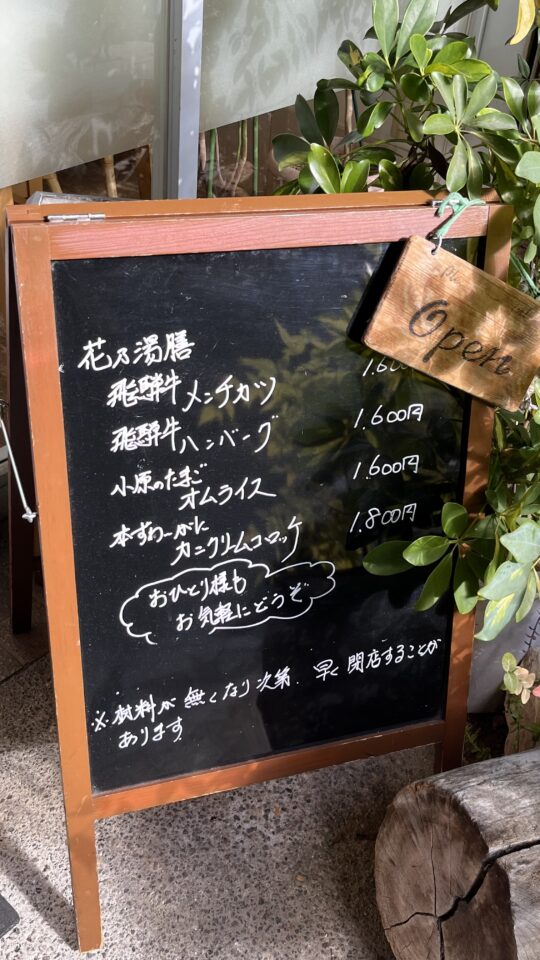 Open
花乃湯膳
飛騨牛メンチカツ 1.600
飛騨牛ハンバーグ 1.600円
小原のたまご
オムライス 1.600円
本ずわーがに
カニクリームコロッケ 1.800円
おひとり様も
お気軽にどうぞ
※材料が無くなり次第、早く閉店することが
あります